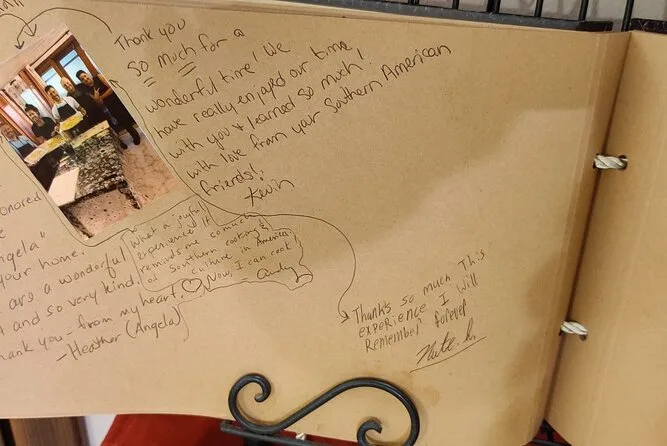 Thank you
so much for a
wonderful time! We
have really enjoyed our time
with you & learned so much!
with love from your Southern American
friends!
Kevin
What a joyful
experience! It
reminds me so much
of Southern cooking &
culture in America.
Wow, I can cook!
Andy
onored
ngela"
your home.
are a wonderful
and so very kind.
hank you - from my heart,
- Heather (Angela)
Thanks so much This
experience I will
Remember forever